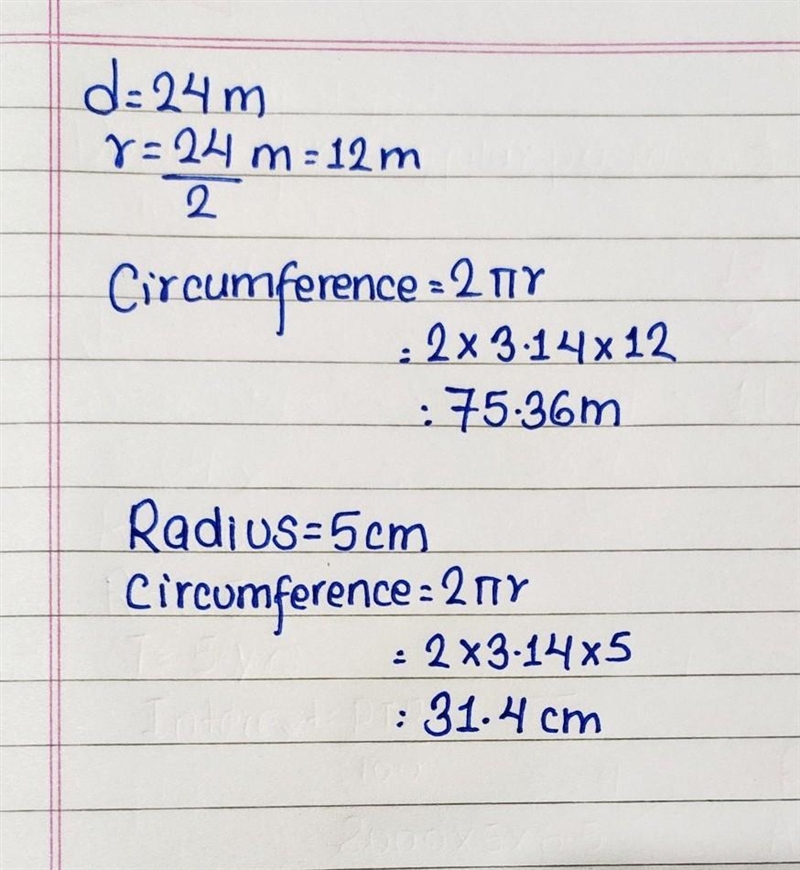 d=24m
r=24/2 m=12m
Circumference=2πr
=2×3.14×12
:75.36m
Radius=5cm
Circumference=2πr
=2×3.14×5
:31.4cm